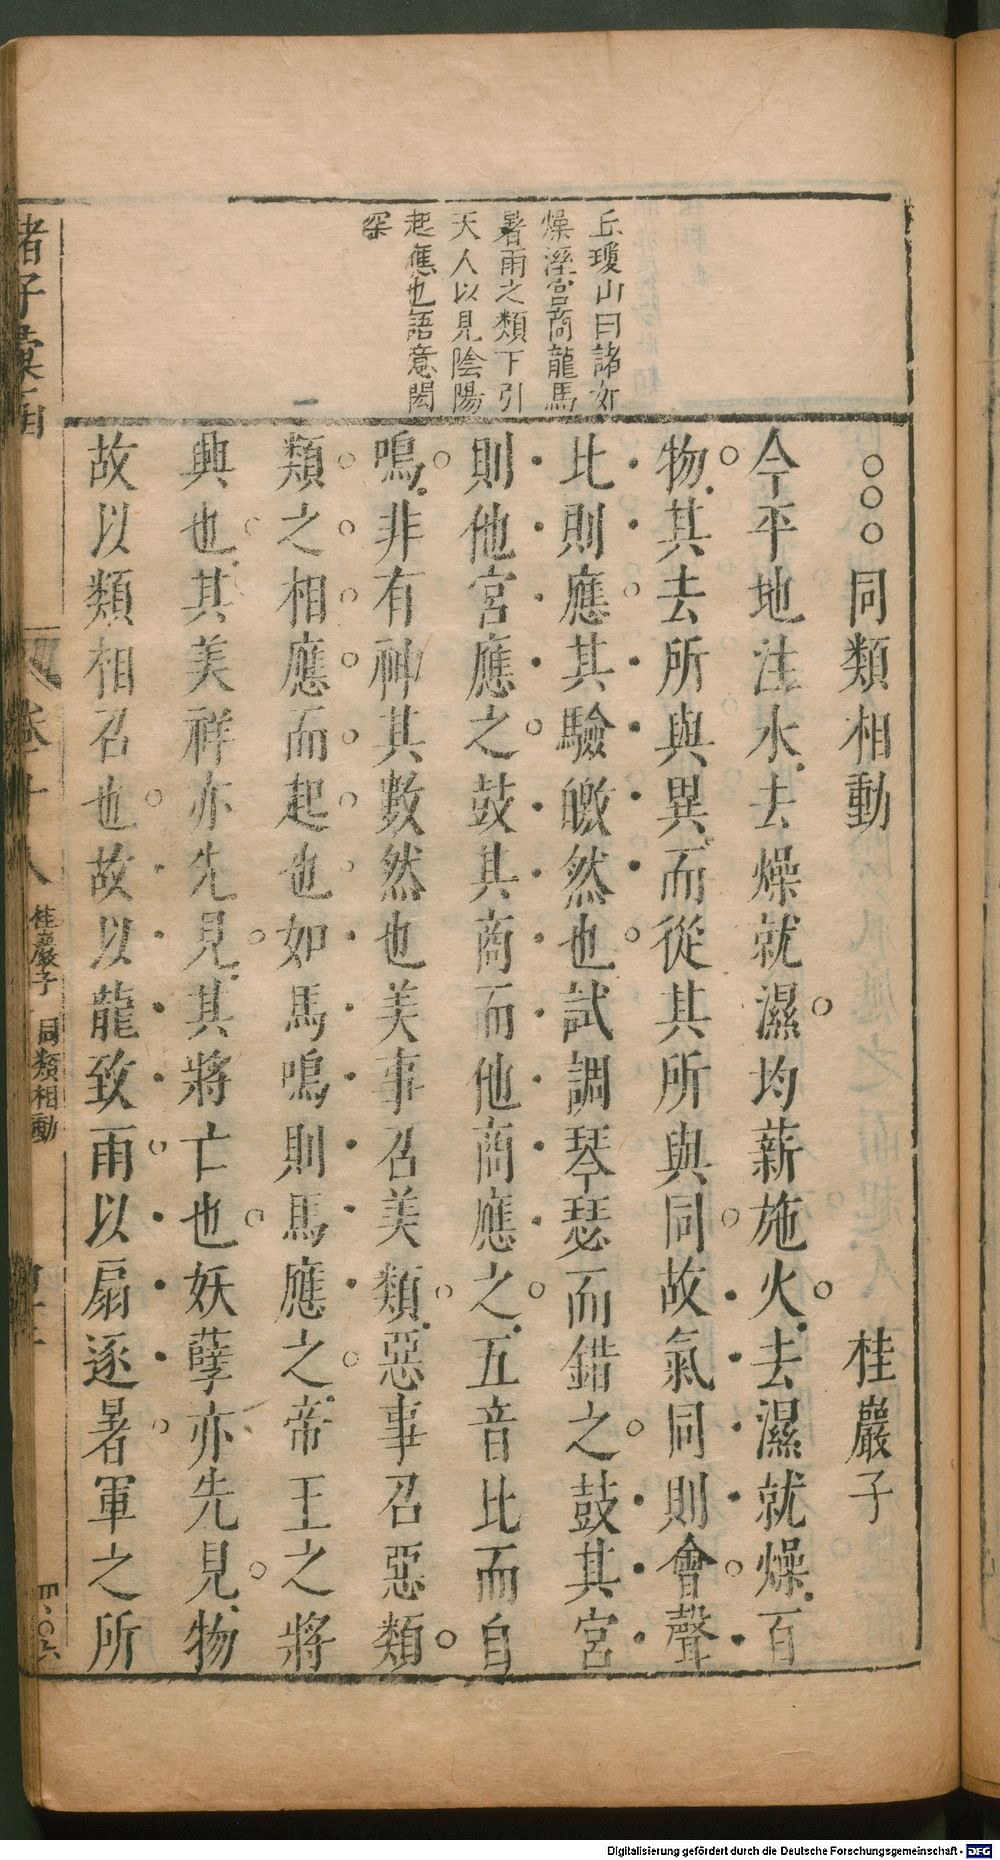 丘瓊山曰諸如
燥溼宮商龍馬
暑雨之類下引
天人以見陰陽
起應也語意閎
深
○○○同類相動 桂巖子
今平地注水去燥就濕均薪施火去濕就燥百
物其去所與異而從其所與同故氣同則會聲
比則應其驗皦然也試調琴瑟而錯之鼓其宮
則他宮應之鼓其商而他商應之五音比而自
鳴非有神其數然也美事召美類惡事召惡類
類之相應而起也如馬鳴則馬應之帝王之將
興也其美祥亦先見其將亡也妖孽亦先見物
故以類相召也故以龍致雨以扇逐暑軍之所
諸子彙函
卷十八
桂巖子 同類相動
Digitalisierung gefördert durch die Deutsche Forschungsgemeinschaft - DFG